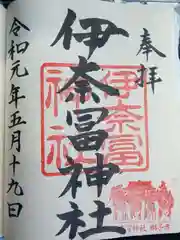 奉拝
伊奈冨神社
伊奈冨
神社
令和元年五月十九日